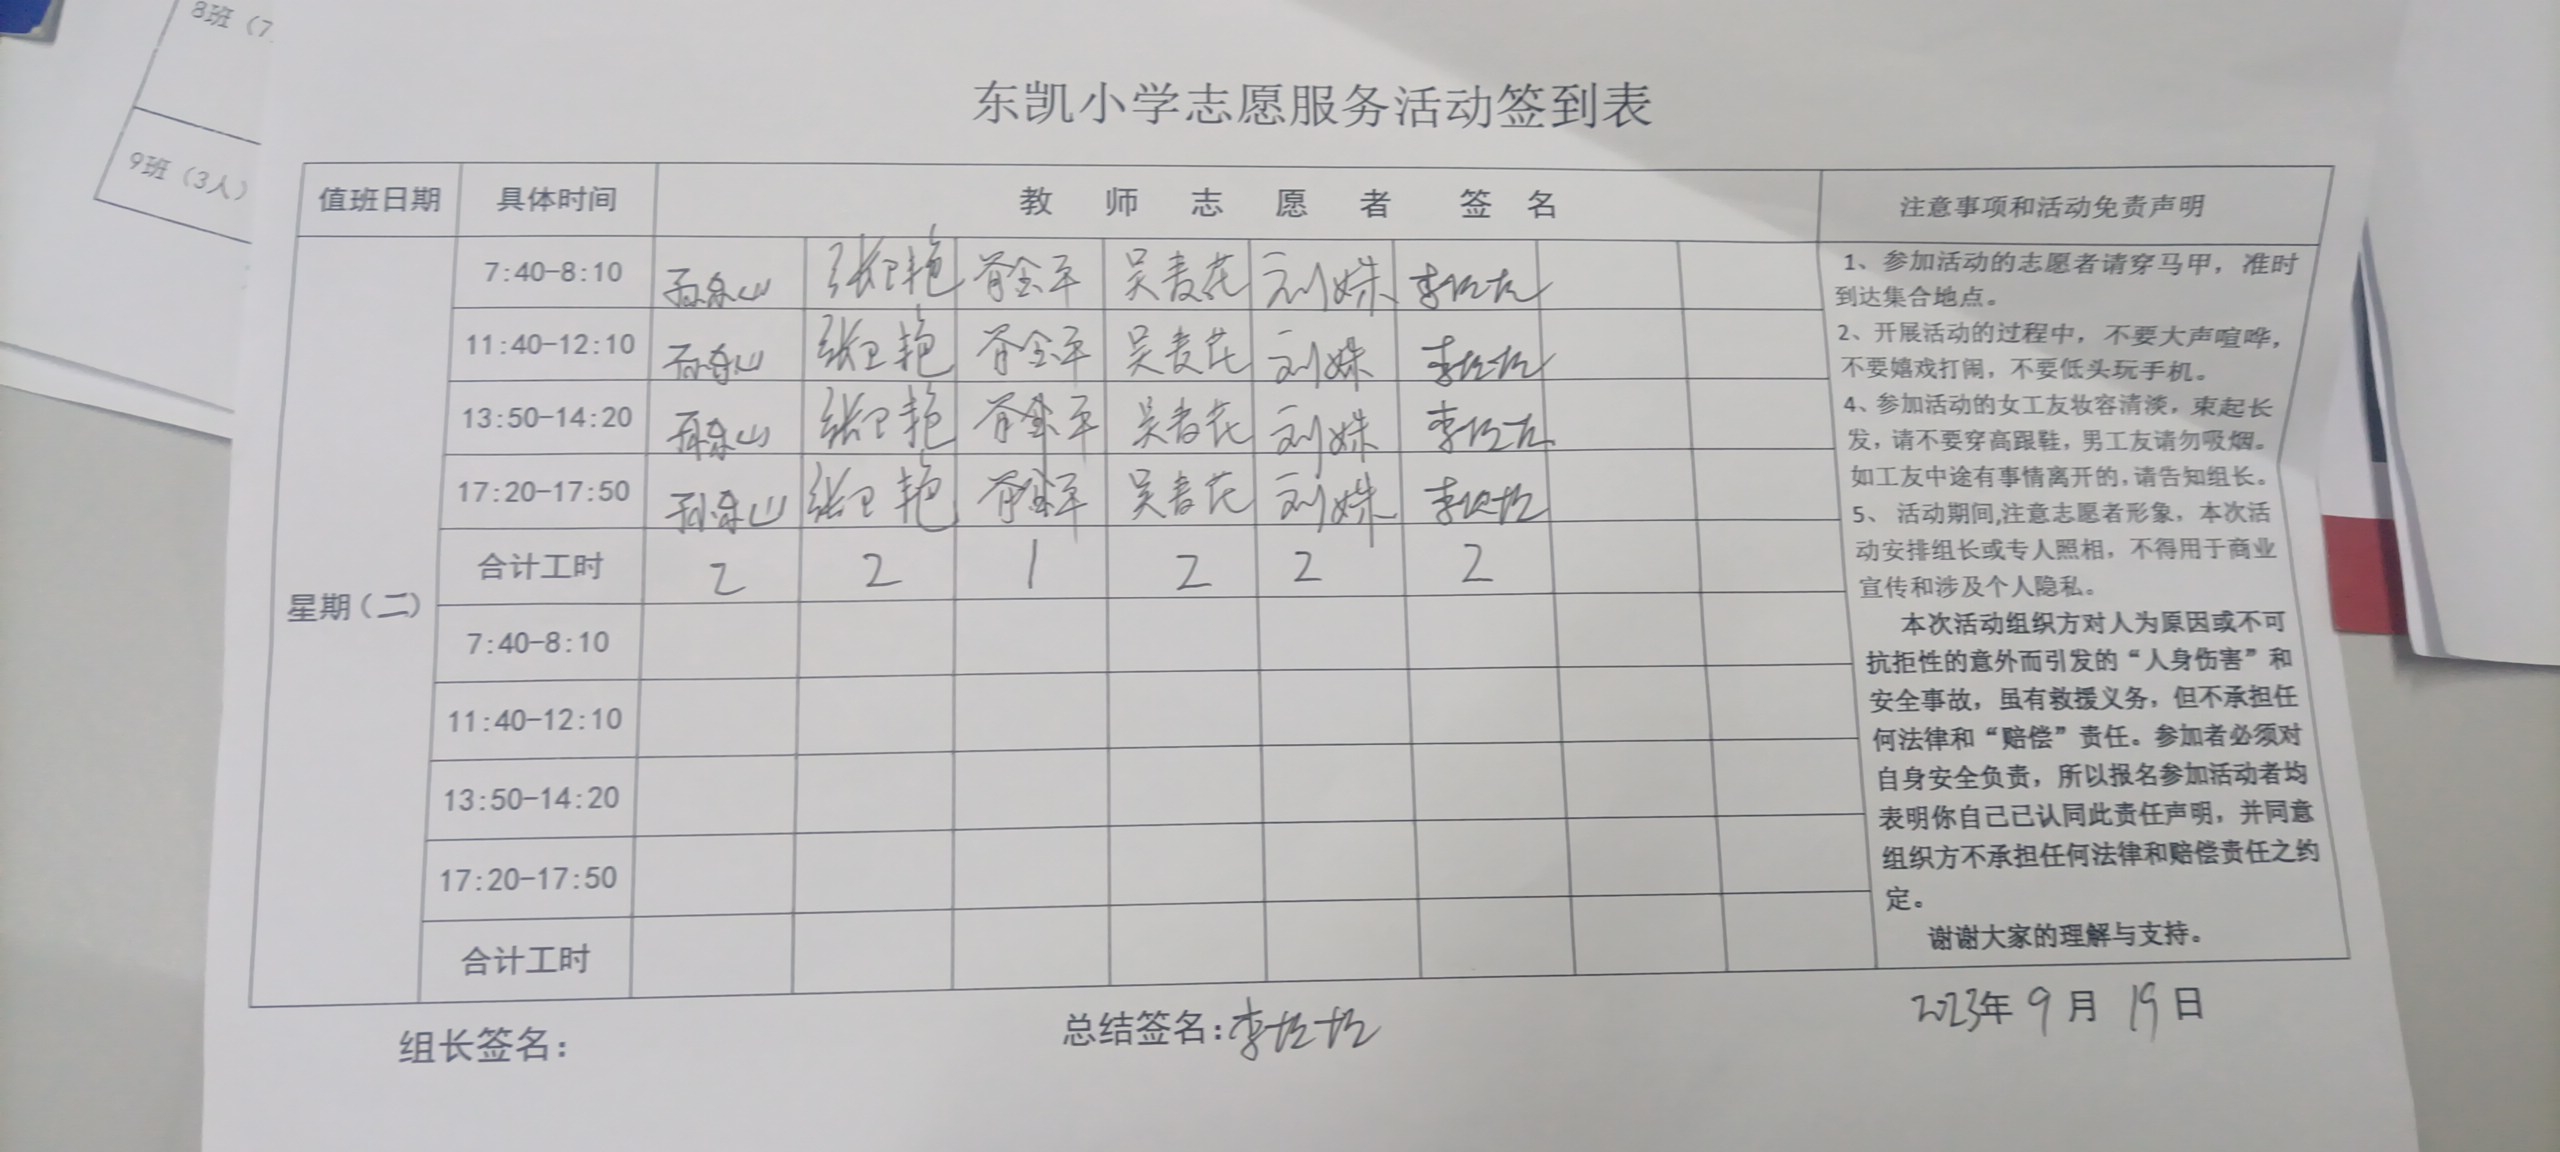 8班（7
9班（3人）
东凯小学志愿服务活动签到表
值班日期 具体时间 教师志愿者签名 注意事项和活动免责声明
星期（二）
7:40-8:10 孙东山 张卫艳 肖金平 吴麦花 刘姝 李垃垃
11:40-12:10 孙东山 张卫艳 肖金平 吴麦花 刘姝 李垃垃
13:50-14:20 孙东山 张卫艳 肖金平 吴麦花 刘姝 李垃垃
17:20-17:50 孙东山 张卫艳 肖金平 吴麦花 刘姝 李垃垃
合计工时 2 2 1 2 2 2
7:40-8:10
11:40-12:10
13:50-14:20
17:20-17:50
合计工时
1、参加活动的志愿者请穿马甲，准时
到达集合地点。
2、开展活动的过程中，不要大声喧哗，
不要嬉戏打闹，不要低头玩手机。
4、参加活动的女工友妆容清淡，束起长
发，请不要穿高跟鞋，男工友请勿吸烟。
如工友中途有事情离开的，请告知组长。
5、 活动期间,注意志愿者形象，本次活
动安排组长或专人照相，不得用于商业
宣传和涉及个人隐私。
本次活动组织方对人为原因或不可
抗拒性的意外而引发的“人身伤害”和
安全事故，虽有救援义务，但不承担任
何法律和“赔偿”责任。参加者必须对
自身安全负责，所以报名参加活动者均
表明你自己已认同此责任声明，并同意
组织方不承担任何法律和赔偿责任之约
定。
谢谢大家的理解与支持。
组长签名： 总结签名：李垃垃 2023年9月19日